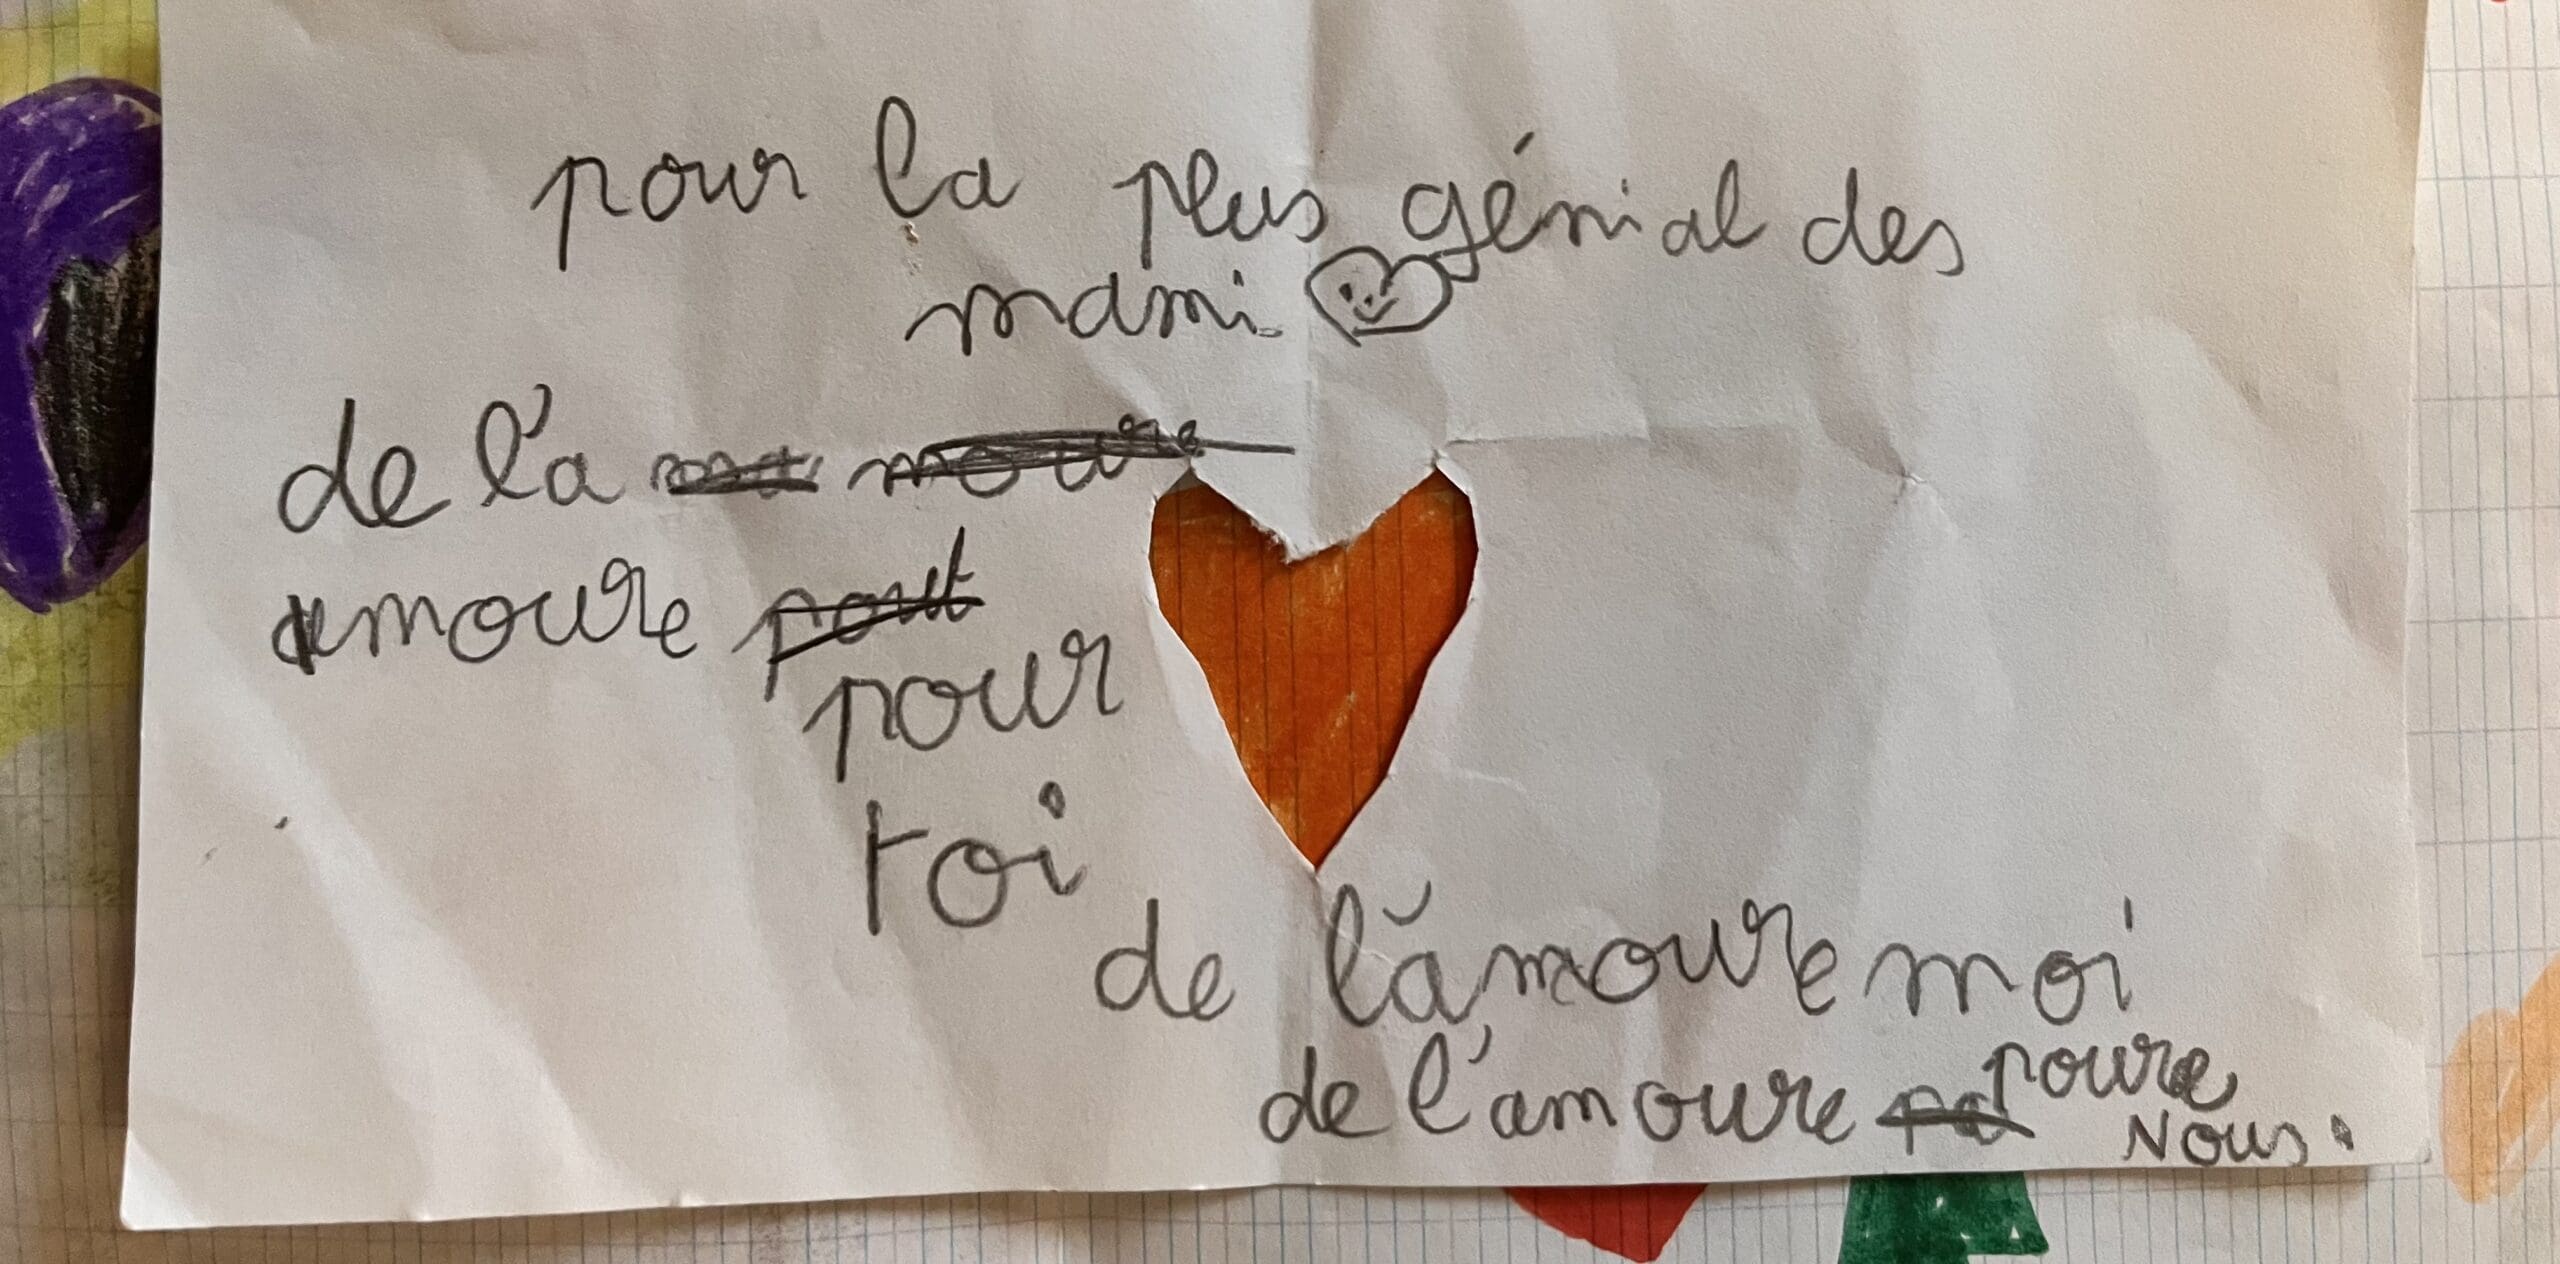 pour la plus génial des
mami
de l'a
amoure
pour
toi
de l'amoure moi
de l'amoure poure
Nous.